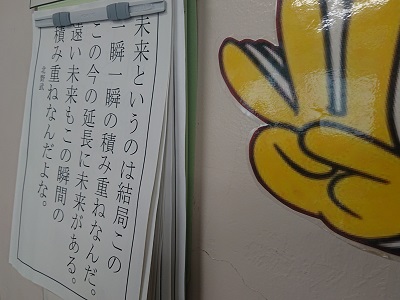 未来というのは結局この
一瞬一瞬の積み重ねなんだ。
この今の延長に未来がある。
遠い未来もこの瞬間の
積み重ねなんだよな。
北野武